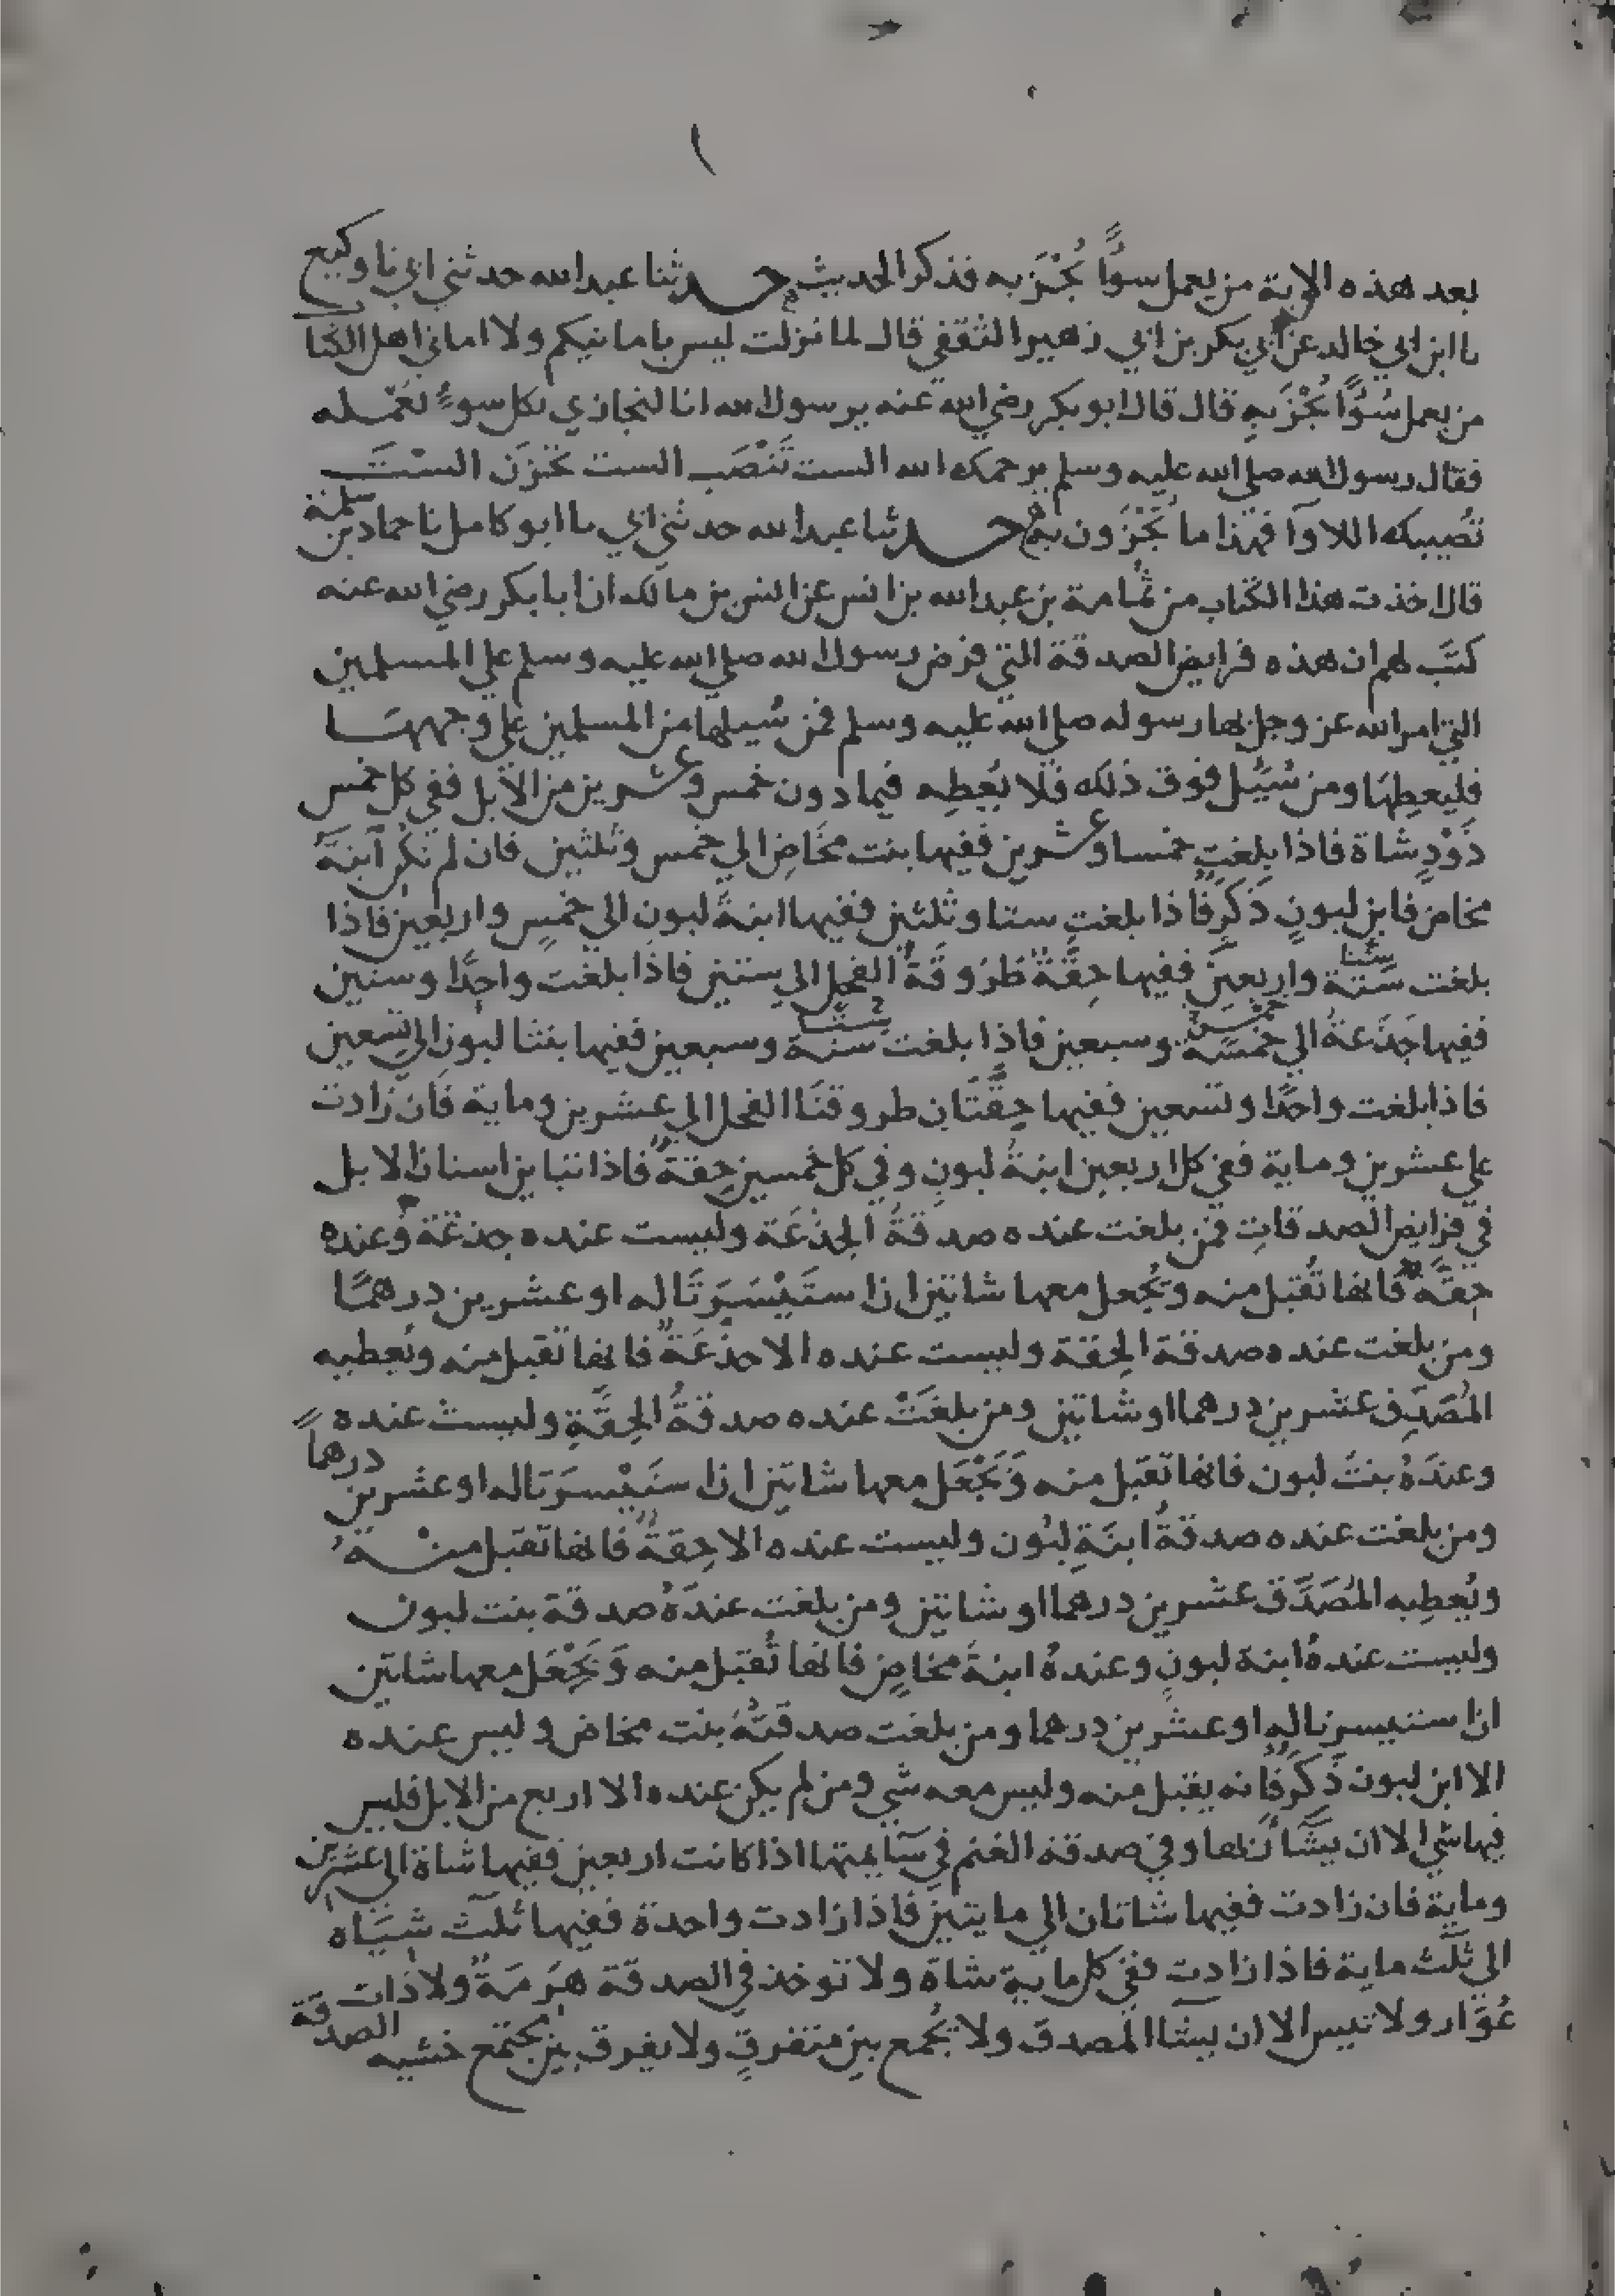 بعد هذه الاية من يعمل سوًّا يُجْزَ به فذكر الحديث حدثنا عبد الله حدثني ابي نا وكيع
نا ابن ابي خالد عن ابي بكر بن ابي زهير الثقفي قال لما نزلت ليس بامانيكم ولا اماني اهل الكتا
من يعمل سُوًّا يُجْزَ بهِ قال قال ابو بكر رضي الله عنه يرسول الله انا لنجازي بكل سوءٍ نَعْمله
فقال رسول الله صلي الله عليه وسلم يرحمك الله الست تَنْصَب الست تحْزَن الست
تُصيبك اللاوآ فهذا ما تُجْزَون به حدثنا عبد الله حدثني ابي نا ابو كامل نا حماد بن سلمة
قال اخذت هذا الكتاب من ثُمامة بن عبد الله بن انس عن انس بن مالك ان ابا بكر رضي الله عنه
كتَب لهم ان هذه فرايض الصدقة التي فرض رسول الله صلي الله عليه وسلم علي المسلمين
التي امر الله عز وجل بها رسوله صلي الله عليه وسلم فمن سُيلها من المسلمين علي وجهها
فليعطِهَا ومن سُيُل فوق ذلك فلا يُعطِه فيما دون خمس وعشرين من الابل ففي كل خمس
ذَوْدٍ شاة فاذا بلغت خمسا وعشرين ففيها بنت مخَاضٍ الي خمس وثلثين فان لم تكن ابنة
مخاض فابن لبونٍ ذكرٍ فاذا بلغت ستا وثلثين ففيها ابنةُ لبون الي خمسٍ واربعين فاذا
بلغت ستة ستا واربعين ففيها حِقَّةٌ طَرُوقَةُ الفحل الي ستين فاذا بلغت واحدًا وستين
ففيها جَذَعةٌ الي خمسة خمس وسبعين فاذا بلغت ستة ستا وسبعين ففيها بنتا لبون الي تسعين
فاذا بلغت واحدًا وتسعين ففيها حِقَّتَان طروقتَا الفحل الي عشرين وماية فان زادت
علي عشرين وماية ففي كل اربعين ابنةُ لبونٍ وفي كل خمسين حِقةٌ فاذا تباين اسنان الابل
في فرايض الصدقاتِ فمن بلغت عنده صدقةُ الجذَعَة وليست عنده جذعة وعنده
حِقَّةٌ فانها تُقبل منه ويُجعل معها شاتين ان استَيْسَرَتَا له او عشرين درهمًا
ومن بلغت عنده صدقة الحِقة وليست عنده الا جذَعَةٌ فانها تقبل منه ويُعطيه
المُصَدِّق عشرين درهما او شاتين ومن بلغَتْ عنده صدقةُ الحِقَّةِ وليست عنده
وعندَهُ بنتُ لبون فانها تقبل منه وَيَجْعَل معها شاتين ان استَيْسرَتا له او عشرين درهما
ومن بلغت عنده صدقةُ ابنَةِ لبُون وليست عنده الا حِقةٌ فانها تقبل منه
ويُعطِيه المُصَدَّق عشرين درهما او شاتين ومن بلغت عندَهُ صدقة بنت لبون
وليست عندهُ ابنة لبونٍ وعندهُ ابنةُ مخاضٍ فانها تُقبَل منه وَيَجْعَل معها شاتين
ان استيسرتا له او عشرين درهما ومن بلغت صدقتهُ بنت مخاض وليس عنده
الا ابن لبون ذَكَرٌ فانه يقبل منه وليس معه شي ومن لم يكن عنده الا اربع من الابل فليس
فيها شي الا ان يشَا ربها وفي صدقة الغنم في سَايمتها اذا كانت اربعين ففيها شاة الي عشرين
وماية فان زادت ففيها شاتان الي مايتين فاذا زادت واحدة ففيها ثلث شيَاه
الي ثلث ماية فاذا زادت ففي كل ماية شاة ولا توخذ في الصدقة هَرِمَةٌ ولا ذات
عُوَّار ولا تيس الا ان يشا المصدق ولا يُجمع بين متفرقٍ ولا يفرق بين مجتمع خشيه الصدقة